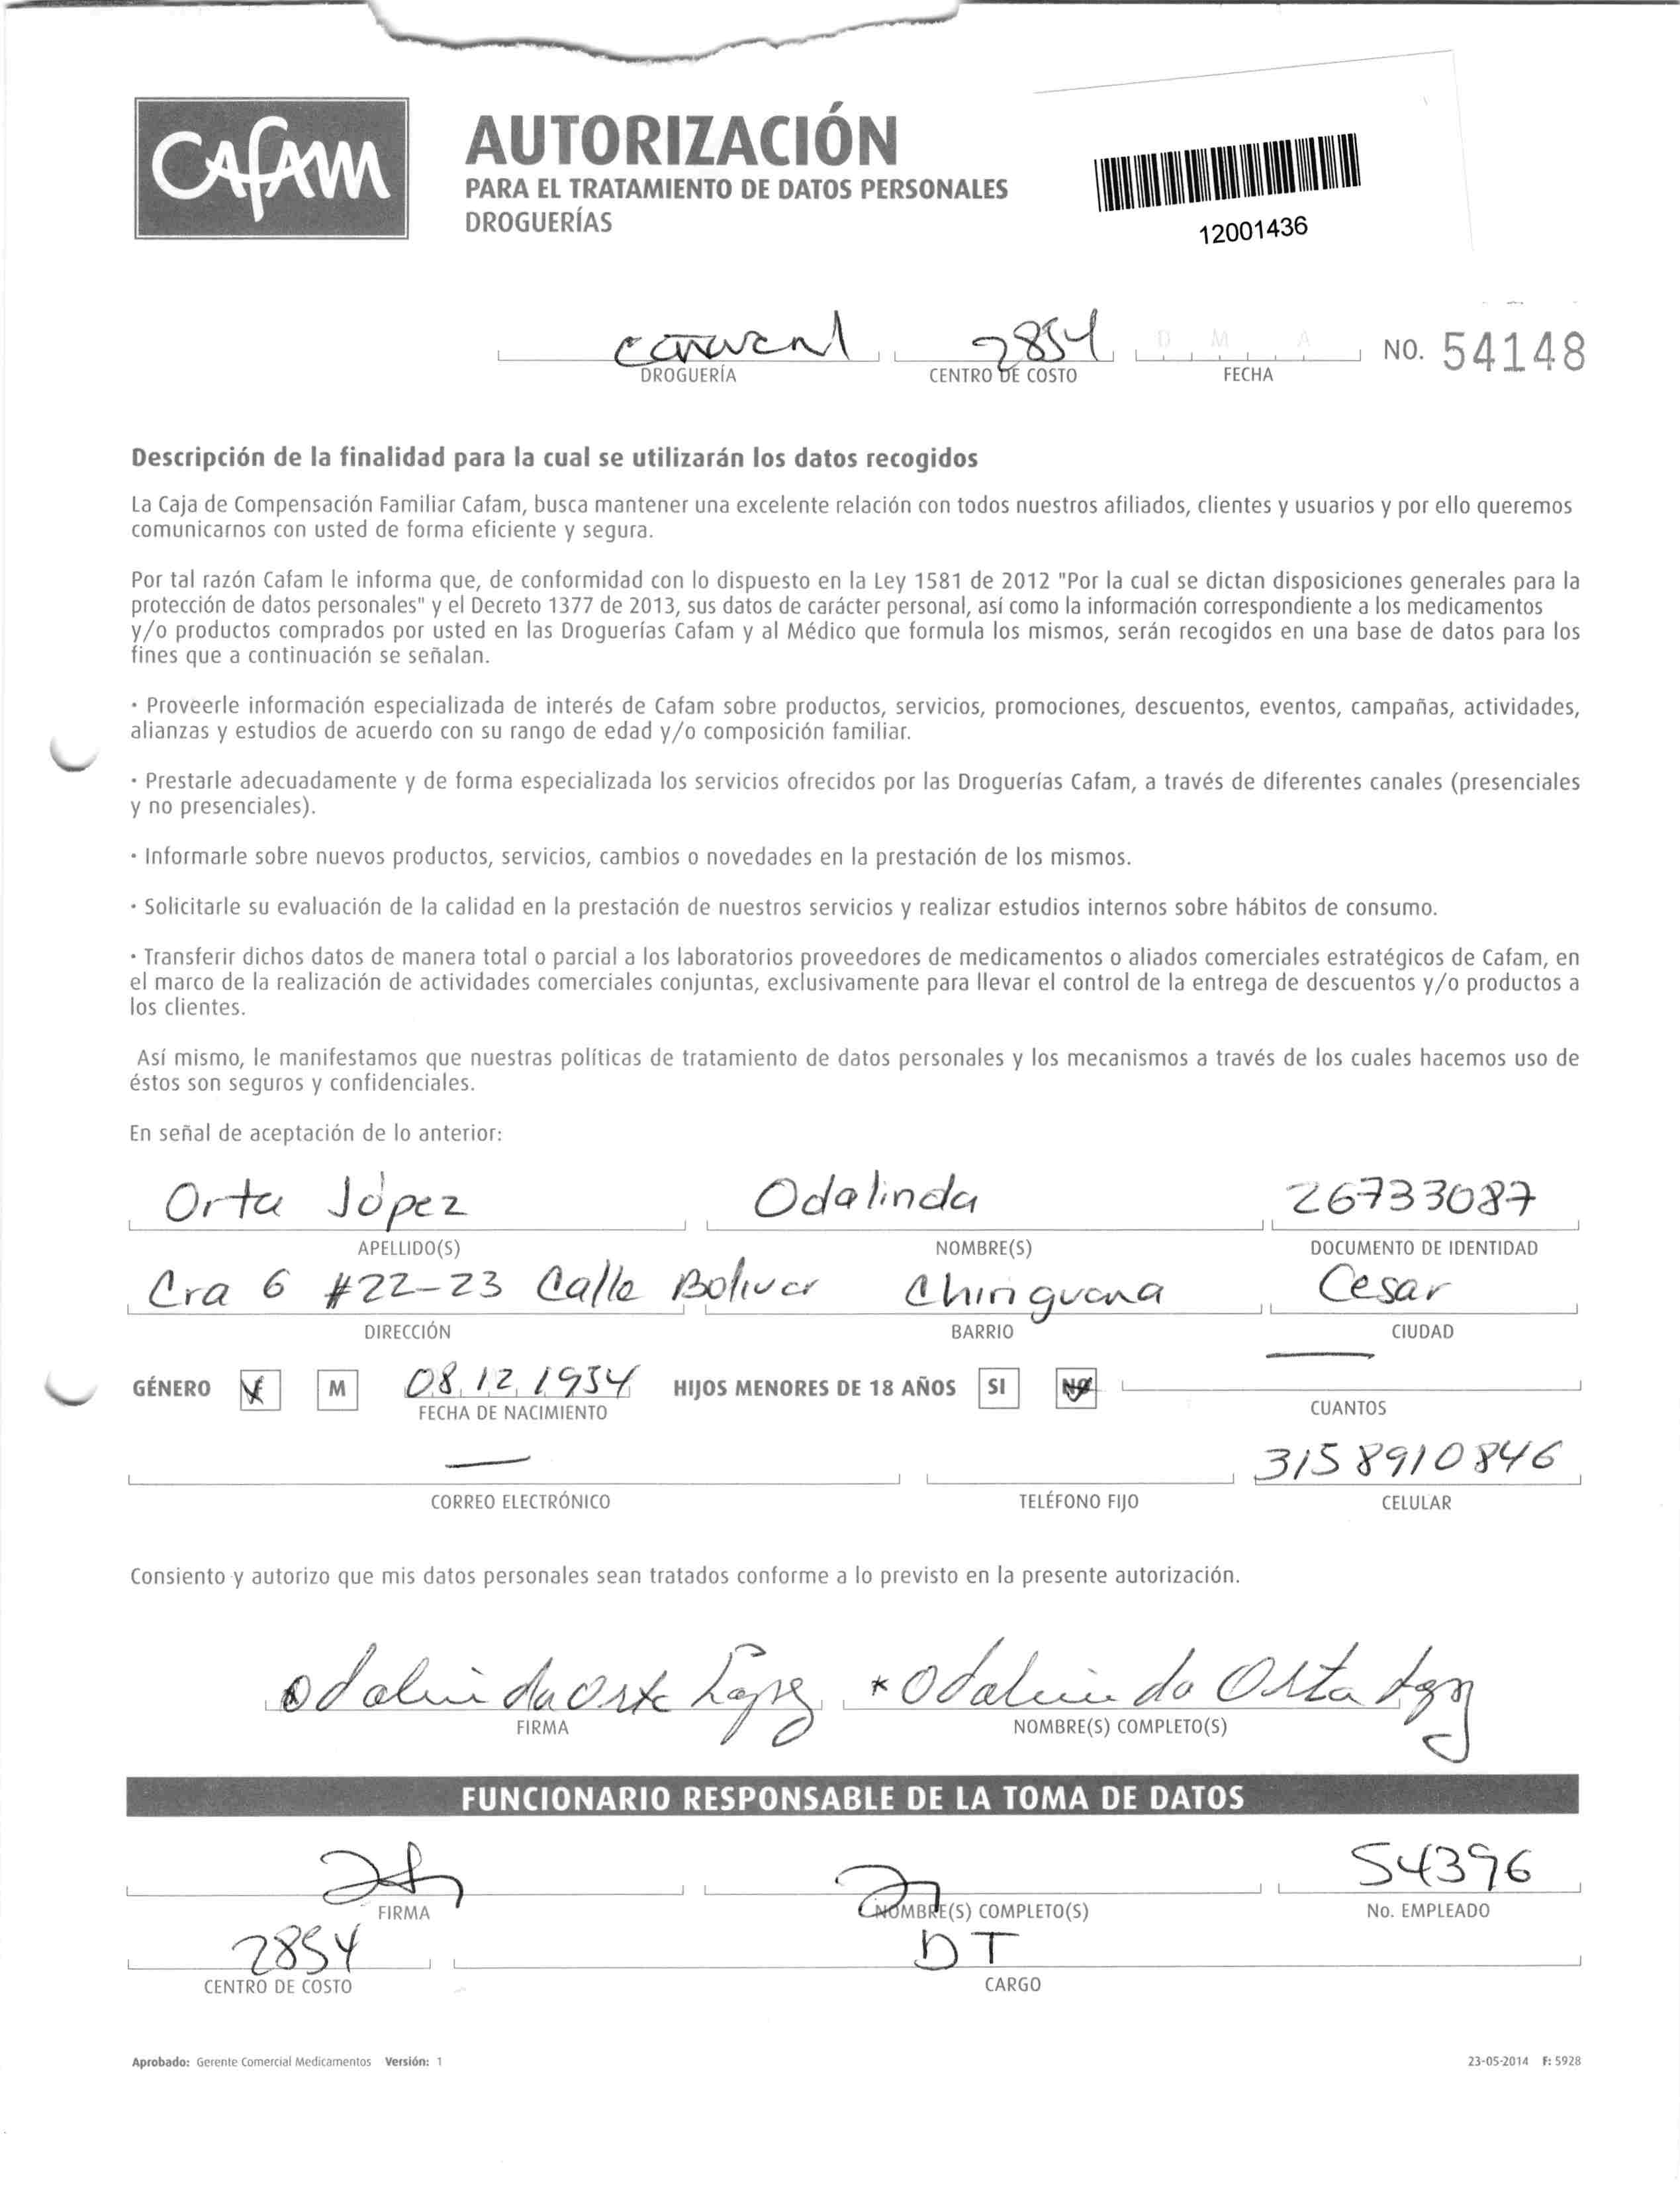 CAFAM
AUTORIZACIÓN
PARA EL TRATAMIENTO DE DATOS PERSONALES
DROGUERÍAS
12001436
2854 D M A
DROGUERÍA CENTRO DE COSTO FECHA NO. 54148
Descripción de la finalidad para la cual se utilizarán los datos recogidos
La Caja de Compensación Familiar Cafam, busca mantener una excelente relación con todos nuestros afiliados, clientes y usuarios y por ello queremos
comunicarnos con usted de forma eficiente y segura.
Por tal razón Cafam le informa que, de conformidad con lo dispuesto en la Ley 1581 de 2012 "Por la cual se dictan disposiciones generales para la
protección de datos personales" y el Decreto 1377 de 2013, sus datos de carácter personal, así como la información correspondiente a los medicamentos
y/o productos comprados por usted en las Droguerías Cafam y al Médico que formula los mismos, serán recogidos en una base de datos para los
fines que a continuación se señalan.
· Proveerle información especializada de interés de Cafam sobre productos, servicios, promociones, descuentos, eventos, campañas, actividades,
alianzas y estudios de acuerdo con su rango de edad y/o composición familiar.
· Prestarle adecuadamente y de forma especializada los servicios ofrecidos por las Droguerías Cafam, a través de diferentes canales (presenciales
y no presenciales).
· Informarle sobre nuevos productos, servicios, cambios o novedades en la prestación de los mismos.
· Solicitarle su evaluación de la calidad en la prestación de nuestros servicios y realizar estudios internos sobre hábitos de consumo.
· Transferir dichos datos de manera total o parcial a los laboratorios proveedores de medicamentos o aliados comerciales estratégicos de Cafam, en
el marco de la realización de actividades comerciales conjuntas, exclusivamente para llevar el control de la entrega de descuentos y/o productos a
los clientes.
Así mismo, le manifestamos que nuestras políticas de tratamiento de datos personales y los mecanismos a través de los cuales hacemos uso de
éstos son seguros y confidenciales.
En señal de aceptación de lo anterior:
Orta López Odalinda 26733087
APELLIDO(S) NOMBRE(S) DOCUMENTO DE IDENTIDAD
Cra 6 #22-23 Calle Bolivar Chiriguana Cesar
DIRECCIÓN BARRIO CIUDAD
GÉNERO M 08.12.1954 HIJOS MENORES DE 18 AÑOS SI NO
FECHA DE NACIMIENTO CUANTOS
3158910846
CORREO ELECTRÓNICO TELÉFONO FIJO CELULAR
Consiento y autorizo que mis datos personales sean tratados conforme a lo previsto en la presente autorización.
Odalinda Orta Lopez * Odalinda Orta Lopez
FIRMA NOMBRE(S) COMPLETO(S)
FUNCIONARIO RESPONSABLE DE LA TOMA DE DATOS
54396
FIRMA NOMBRE(S) COMPLETO(S) No. EMPLEADO
2854 DT
CENTRO DE COSTO CARGO
Aprobado: Gerente Comercial Medicamentos Versión: 1 23-05-2014 F: 5928